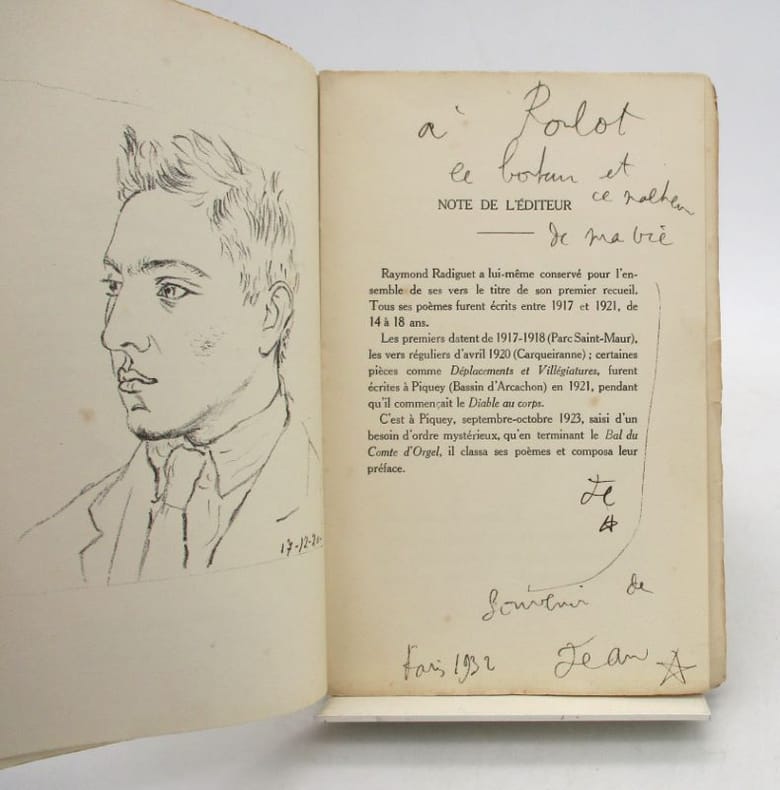 17-12-20-
à Poulot
ce et
NOTE DE L'ÉDITEUR
ce malheur
de ma vie
Raymond Radiguet a lui-même conservé pour l'en-
semble de ses vers le titre de son premier recueil.
Tous ses poèmes furent écrits entre 1917 et 1921, de
14 à 18 ans.
Les premiers datent de 1917-1918 (Parc Saint-Maur),
les vers réguliers d'avril 1920 (Carqueiranne) ; certaines
pièces comme Déplacements et Villégiatures, furent
écrites à Piquey (Bassin d'Arcachon) en 1921, pendant
qu'il commençait le Diable au corps.
C'est à Piquey, septembre-octobre 1923, saisi d'un
besoin d'ordre mystérieux, qu'en terminant le Bal du
Comte d'Orgel, il classa ses poèmes et composa leur
préface.
Je
Souvenir de
Jean
Paris 1932